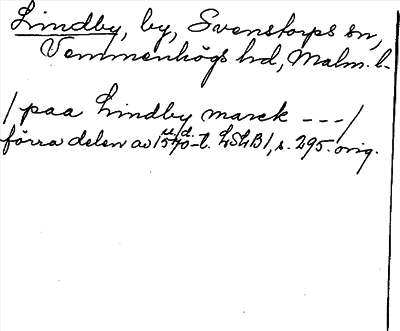 Lindby, by, Svenstorps sn,
Vemmenhögs hd, Malm. l.
/ paa Lindby marck --- /
förra delen av 1570-t. LSLB1, s. 295. orig.